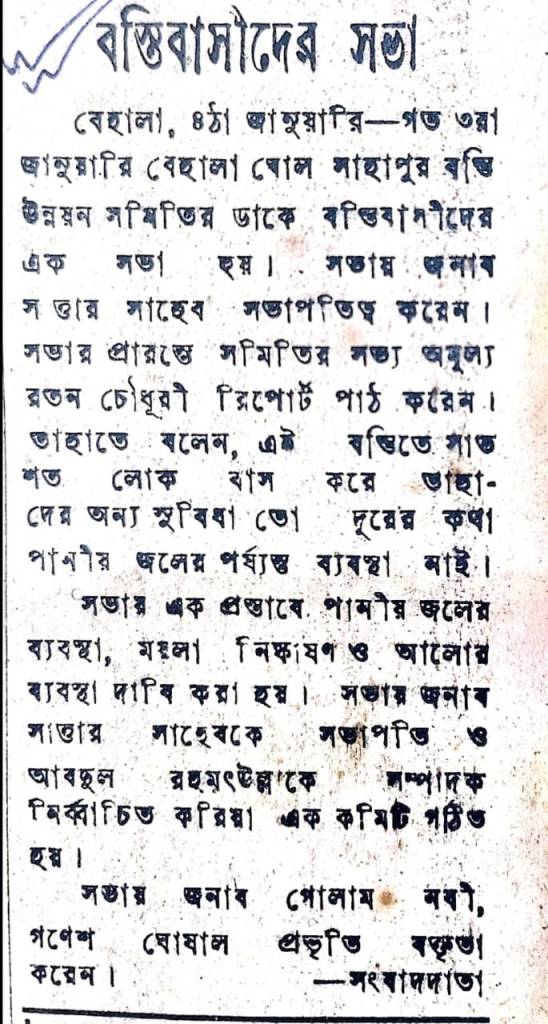 বস্তিবাসীদের সভা
বেহালা, ৪ঠা জানুয়ারি—গত ৩রা
জানুয়ারি বেহালা ঘোল সাহাপুর বস্তি
উন্নয়ন সমিতির ডাকে বস্তিবাসীদের
এক সভা হয়। সভায় জনাব
সত্তার সাহেব সভাপতিত্ব করেন।
সভার প্রারম্ভে সমিতির সভ্য অমূল্য
রতন চৌধুরী রিপোর্ট পাঠ করেন।
তাহাতে বলেন, এই বস্তিতে সাত
শত লোক বাস করে তাহা-
দের অন্য সুবিধা তো দূরের কথা
পানীয় জলের পর্য্যন্ত ব্যবস্থা নাই।
সভার এক প্রস্তাবে পানীয় জলের
ব্যবস্থা, ময়লা নিষ্কাষণ ও আলোর
ব্যবস্থা দাবি করা হয়। সভায় জনাব
সাত্তার সাহেবকে সভাপতি ও
আবদুল রহমৎউল্লাকে সম্পাদক
নির্ব্বাচিত করিয়া এক কমিটি গঠিত
হয়।
সভায় জনাব গোলাম নবী,
গণেশ ঘোষাল প্রভৃতি বক্তৃতা
করেন। —সংবাদদাতা